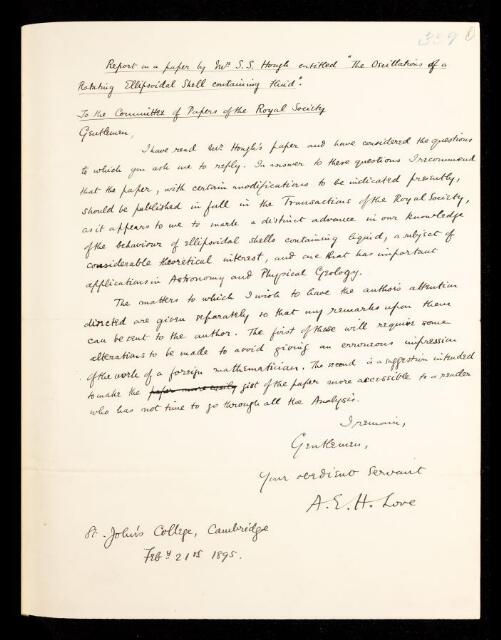 339
Report on a paper by Mr. S.S. Hough entitled "The Oscillations of a
Rotating Ellipsoidal Shell containing Fluid".
To the Committee of Papers of the Royal Society
Gentlemen,
I have read Mr Hough's paper and have considered the questions
to which you ask me to reply. In answer to these questions I recommend
that the paper, with certain modifications to be indicated presently,
should be published in full in the Transactions of the Royal Society,
as it appears to me to mark a distinct advance in our knowledge
of the behaviour of ellipsoidal shells containing liquid, a subject of
considerable theoretical interest, and one that has important
applications in Astronomy and Physical Geology.
The matters to which I wish to have the author's attention
directed are given separately so that my remarks upon them
can be sent to the author. The first of these will require some
alterations to be made to avoid giving an erroneous impression
of the work of a foreign mathematician. The second is a suggestion intended
to make the paper more easily gist of the paper more accessible to a reader
who has not time to go through all the Analysis.
I remain,
Gentlemen,
Your obedient servant
A.E.H. Love
St. John's College, Cambridge
Feby 21st 1895.